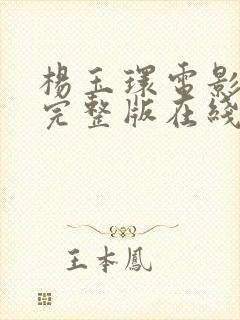 楊玉環電影
完整版在綫
王本鳳